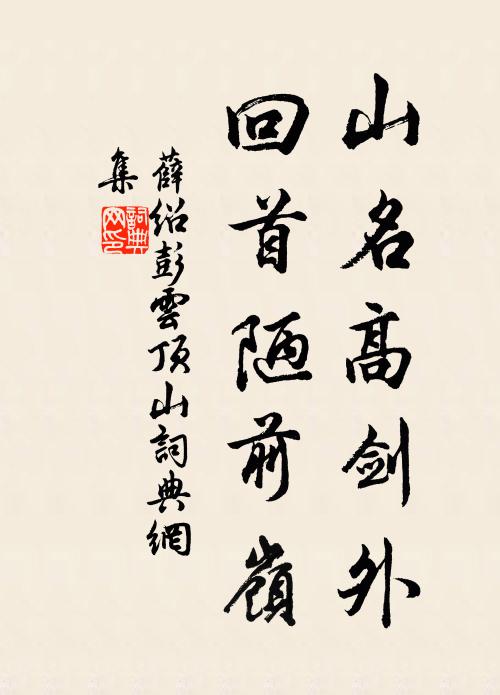 山名高剑外
回首陋前嶺
薛绍彭雲頂山詞典網
集
詞典网印